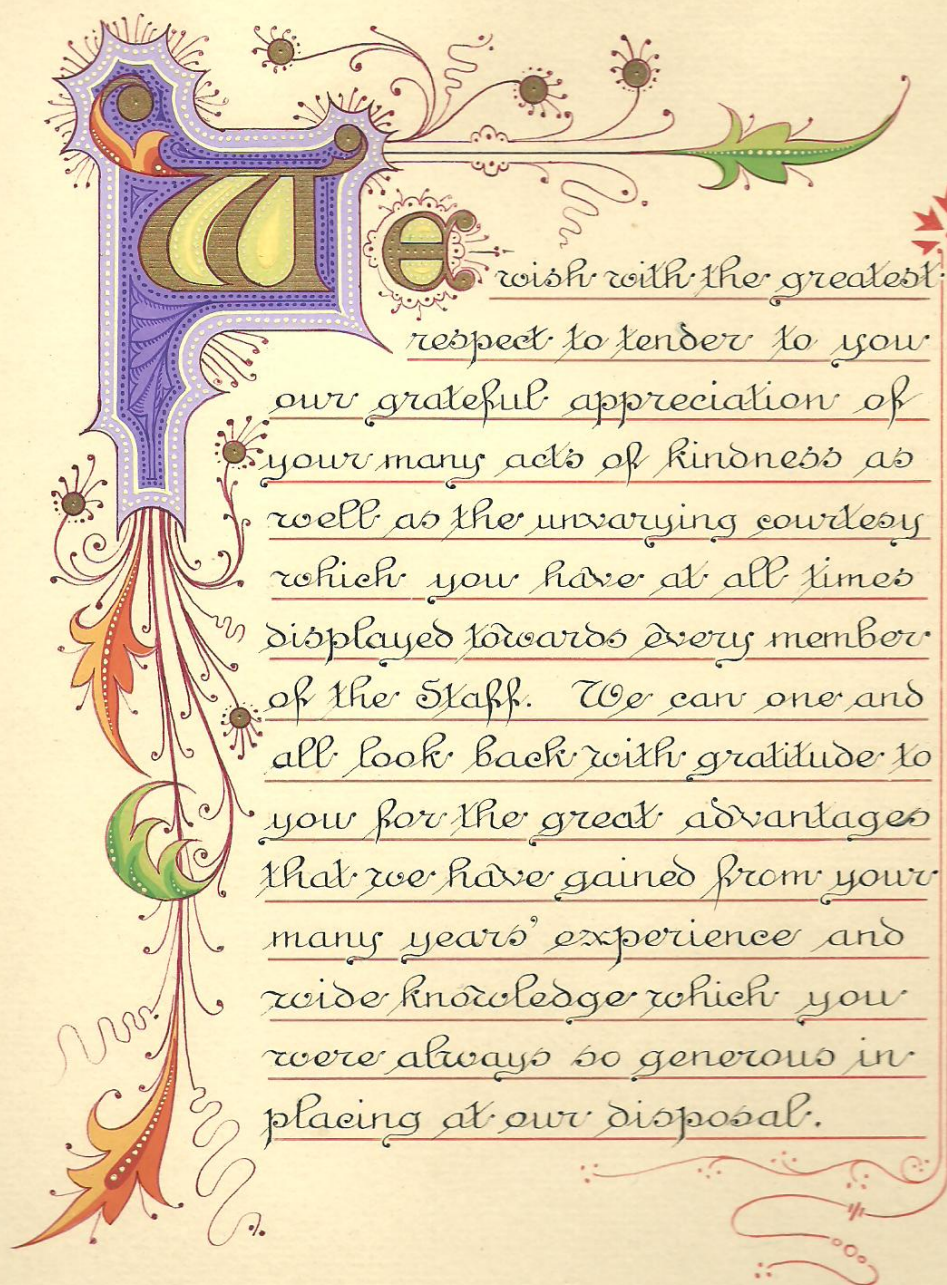 We wish with the greatest
respect to tender to you
our grateful appreciation of
your many acts of kindness as
well as the unvarying courtesy
which you have at all times
displayed towards every member
of the Staff. We can one and
all look back with gratitude to
you for the great advantages
that we have gained from your
many years' experience and
wide knowledge which you
were always so generous in
placing at our disposal.